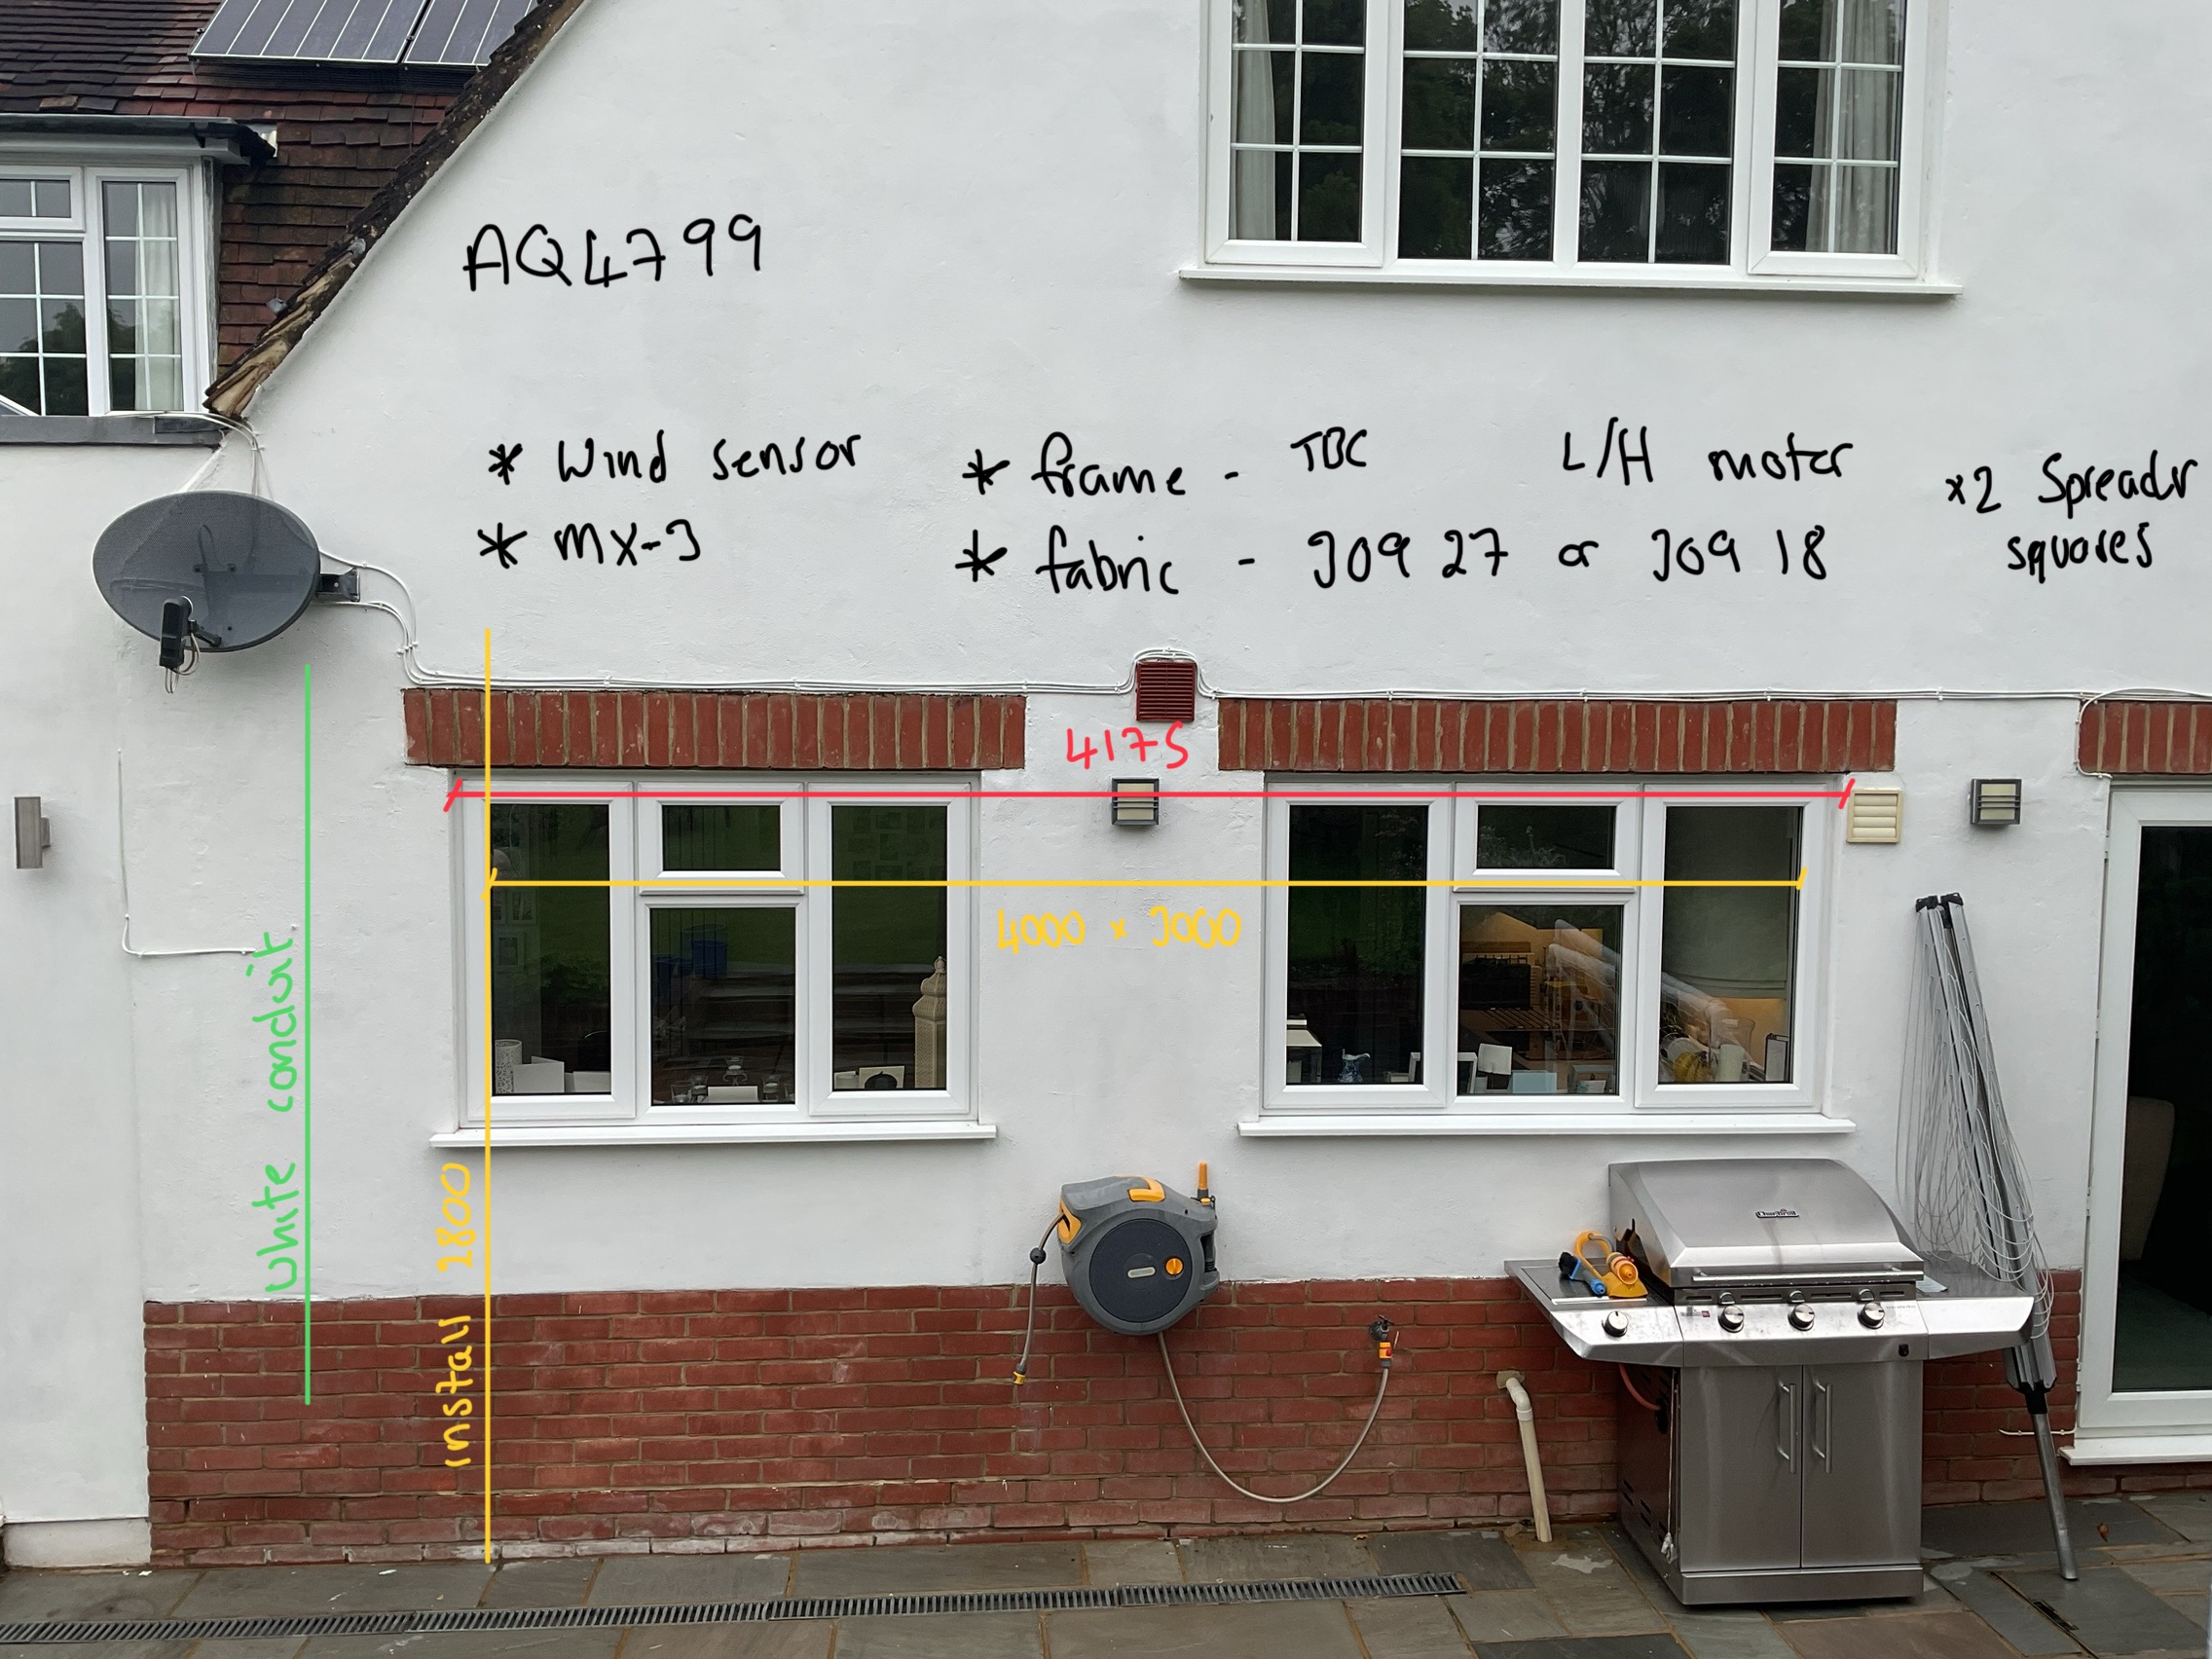 AQ4799
* Wind sensor
* MX-3
* frame - TBC
* fabric - 309 27 or 309 18
L/H motor
x2 Spreadr
squares
4175
4000 x 3000
white conduit
install 2800